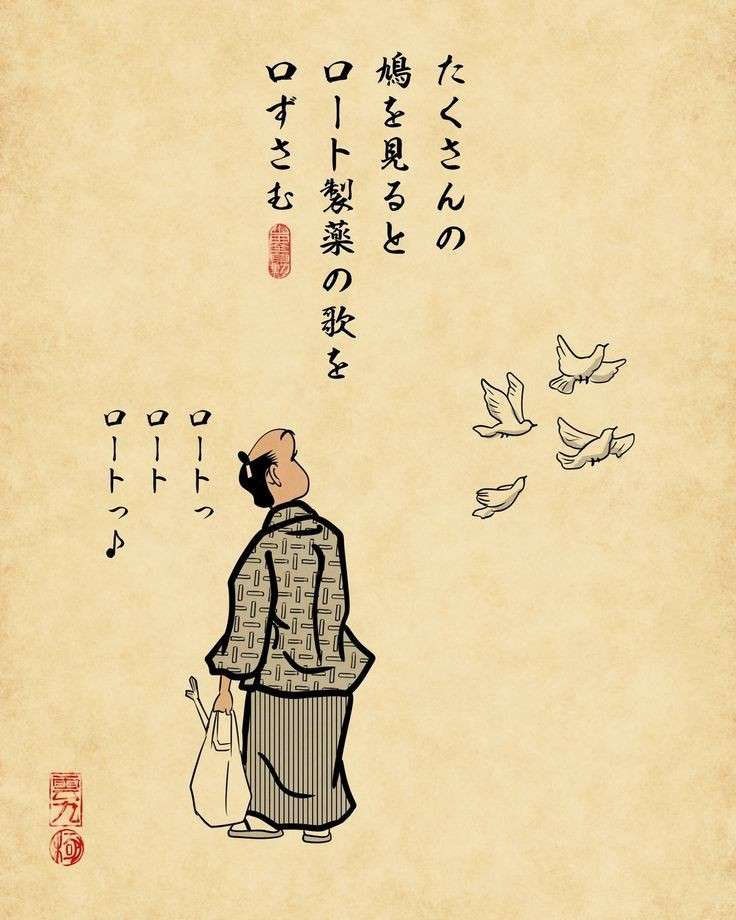 たくさんの
鳩を見ると
ロート製薬の歌を
口ずさむ
ロートっ
ロート
ロートっ♪